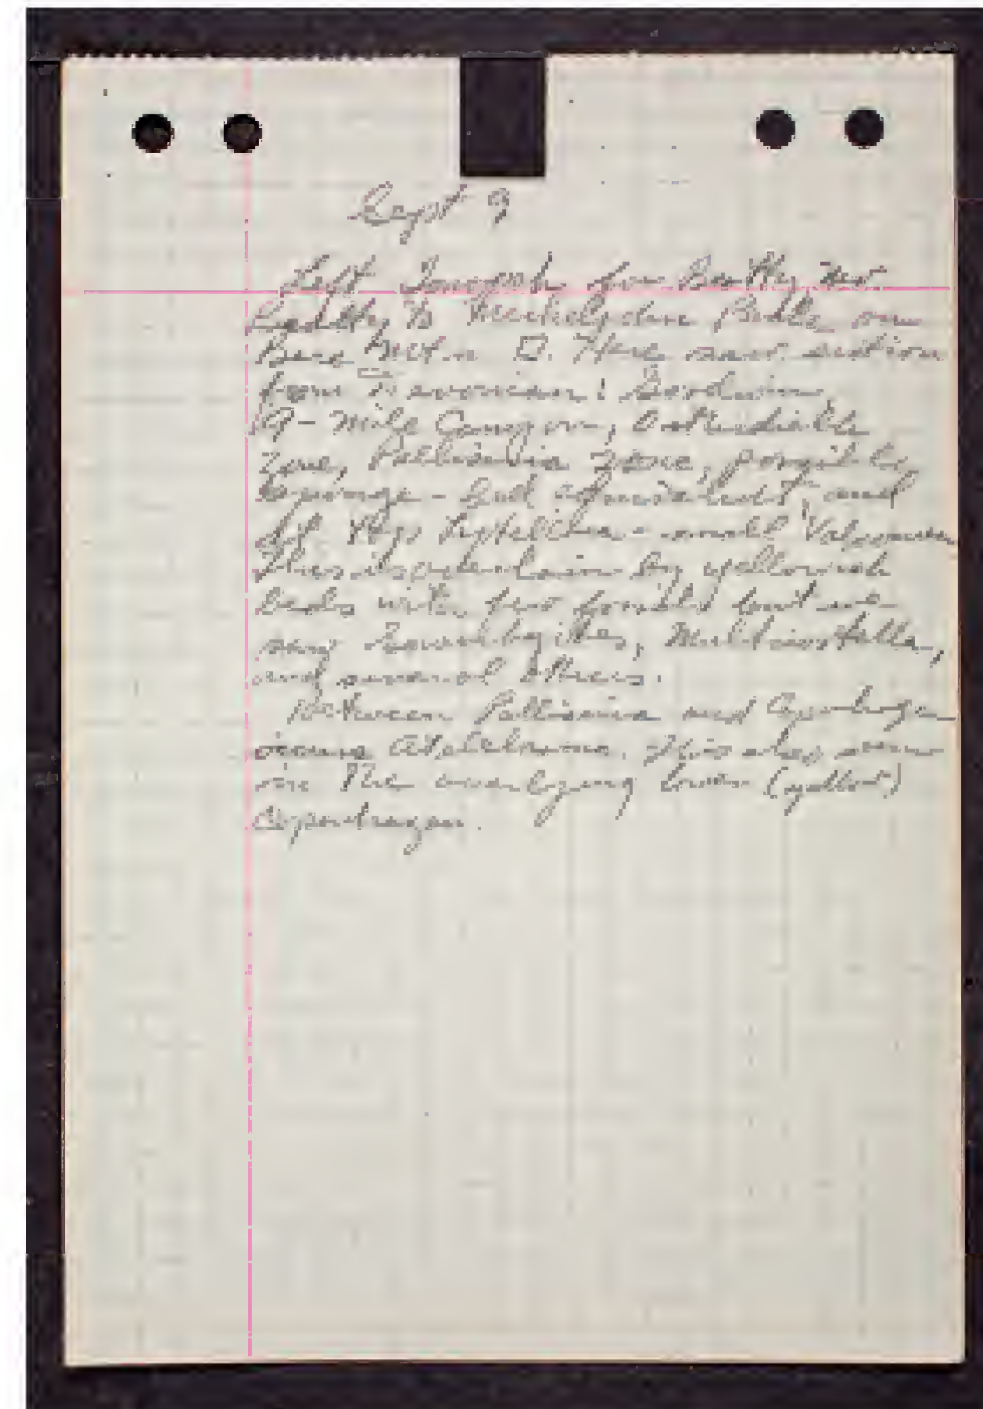 Sept 9
Left Tonopah for Beatty, Nev.
Beatty to Meiklejohn Peak, on
Bare Mtn Q. Here saw section
from Devonian: Goodwin,
9-Mile Canyon, Orthidiella
zone, Palliseria zone, possible
sponge - and and
at top small Valcourea
This is overlain by yellowish
beds with few fossils but we
saw Sowerbyites, Multicostella,
and several others.
Between Palliseria and Copenhagen
occurs Atelelasma. This also seen
in the overlying lower (yellow)
Copenhagen.